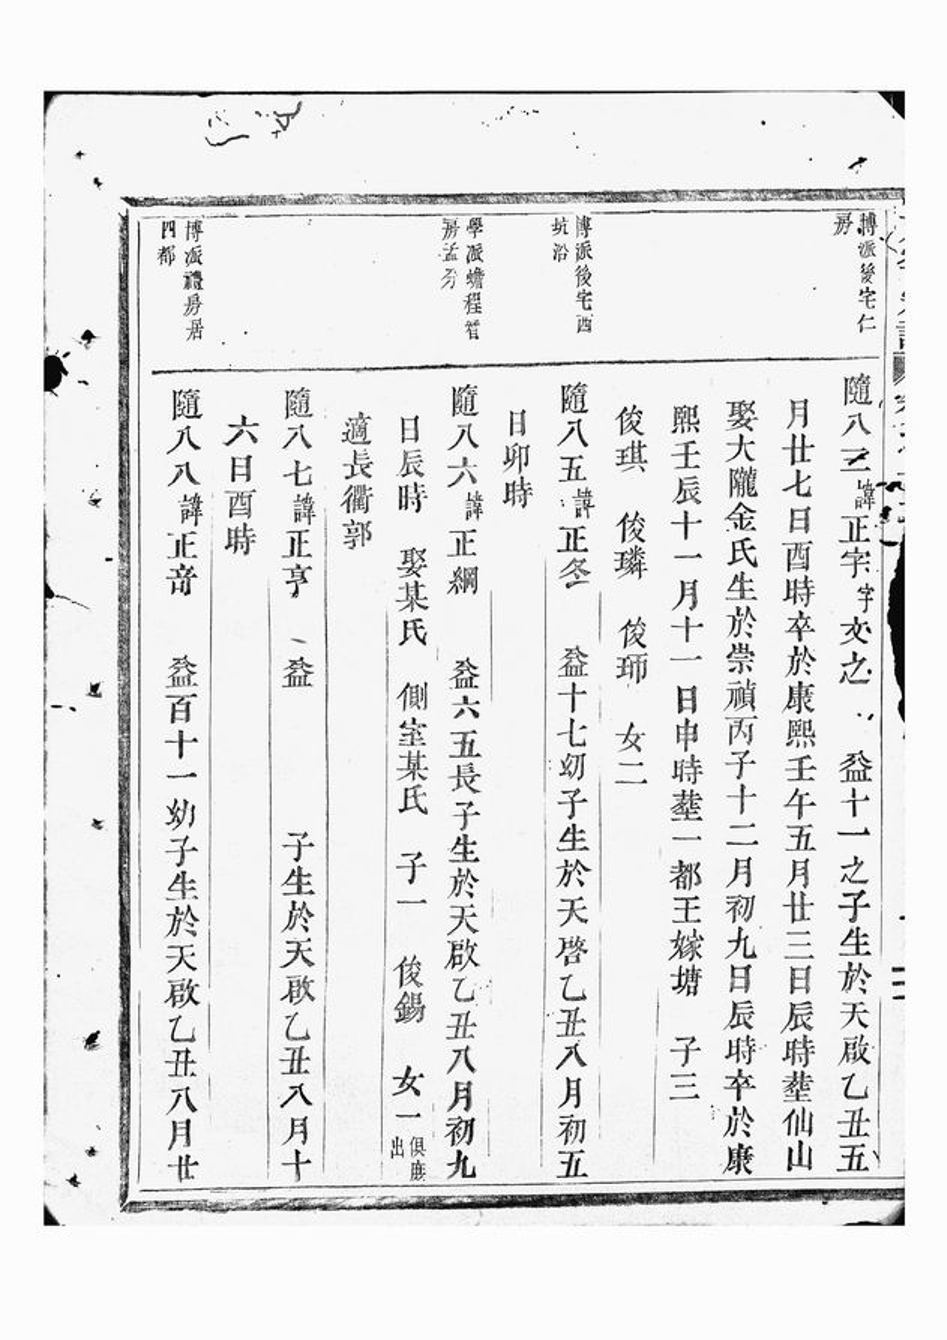 博派後宅仁
房
隨八三諱正字字文之 益十一之子生於天啟乙丑五
月廿七日酉時卒於康熙壬午五月廿三日辰時塟仙山
娶大隴金氏生於崇禎丙子十二月初九日辰時卒於康
熙壬辰十一月十一日申時塟一都王嫁塘 子三
俊琪 俊璘 俊珋 女二
博派後宅西
坑沿
隨八五諱正冬 益十七幼子生於天啓乙丑八月初五
日卯時
學派蟾程管
房孟分
隨八六諱正綱 益六五長子生於天啟乙丑八月初九
日辰時 娶某氏 側室某氏 子一 俊錫 女一俱庶出
適長衢郭
隨八七諱正亨 益 子生於天啟乙丑八月十
六日酉時
博派禮房居
四都
隨八八諱正音 益百十一幼子生於天啟乙丑八月廿